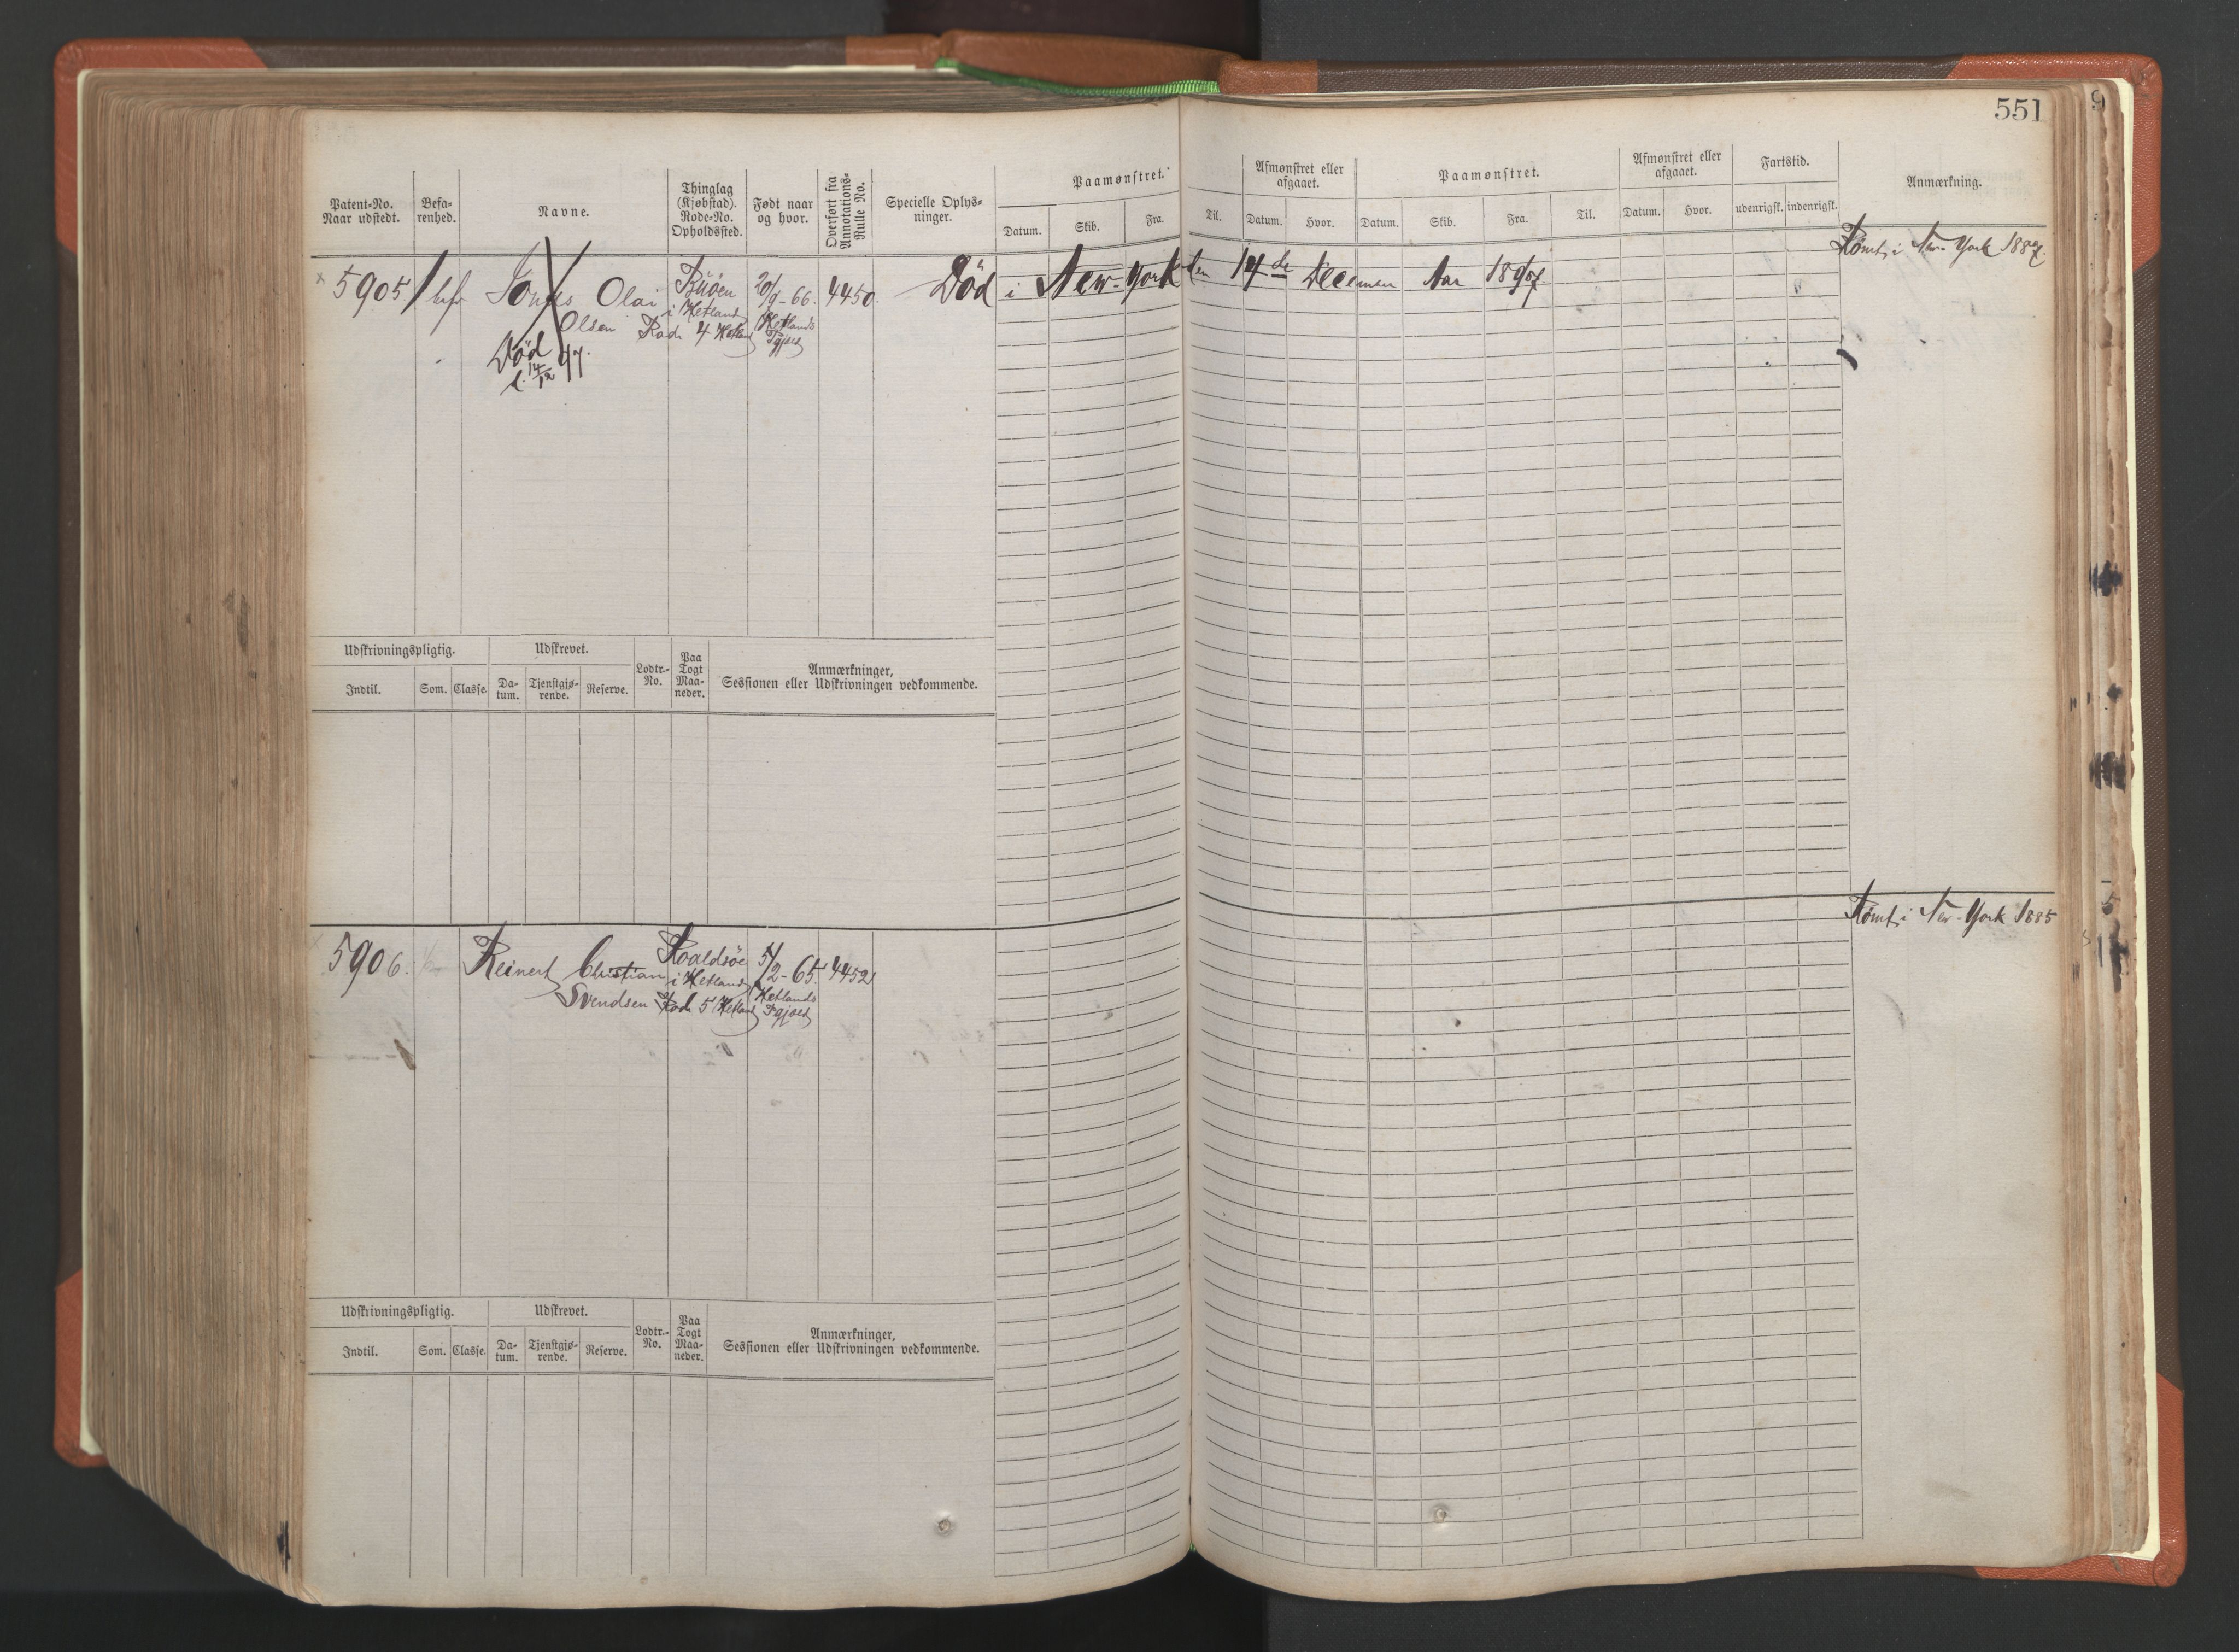 551
Patent-No.
Naar udstedt.
Befa-
renhed.
Navne.
Thinglag
(Kjøbstad).
Rode-No.
Opholdssted.
Født naar
og hvor.
Overført fra
Annotations-
Rulle No.
Specielle Oplys-
ninger.
Paamønstret.
Datum.
Skib.
Fra.
Til.
Afmønstret eller
afgaaet.
Datum.
Hvor.
Paamønstret.
Datum.
Skib.
Fra.
Til.
Afmønstret eller
afgaaet.
Datum.
Hvor.
Fartstid.
udenrigsk.
indenrigsk.
Anmærkning.
Rømt i New-York 1887.
5905
Olai
Olsen
i Hetland
Rode 4 Hetland
20/9-66.
Hetlands
Pgjæld
4450.
Död i New-York den 14de Decemer Aar 1897.
Död
d. 14/12 97.
Udskrivningspligtig.
Udskrevet.
Lodtr.-
No.
Paa
Togt
Maa-
neder.
Anmærkninger,
Sessionen eller Udskrivningen vedkommende.
Indtil.
Som.
Classe.
Da-
tum.
Tjenstgjø-
rende.
Reserve.
Rømt i New-York 1885
5906.
Reinert Christian
Svendsen
Roaldsöe
i Hetland
Rode 5 Hetland
5/2-65.
Hetlands
Pgjæld
4452
Udskrivningspligtig.
Udskrevet.
Lodtr.-
No.
Paa
Togt
Maa-
neder.
Anmærkninger,
Sessionen eller Udskrivningen vedkommende.
Indtil.
Som.
Classe.
Da-
tum.
Tjenstgjø-
rende.
Reserve.